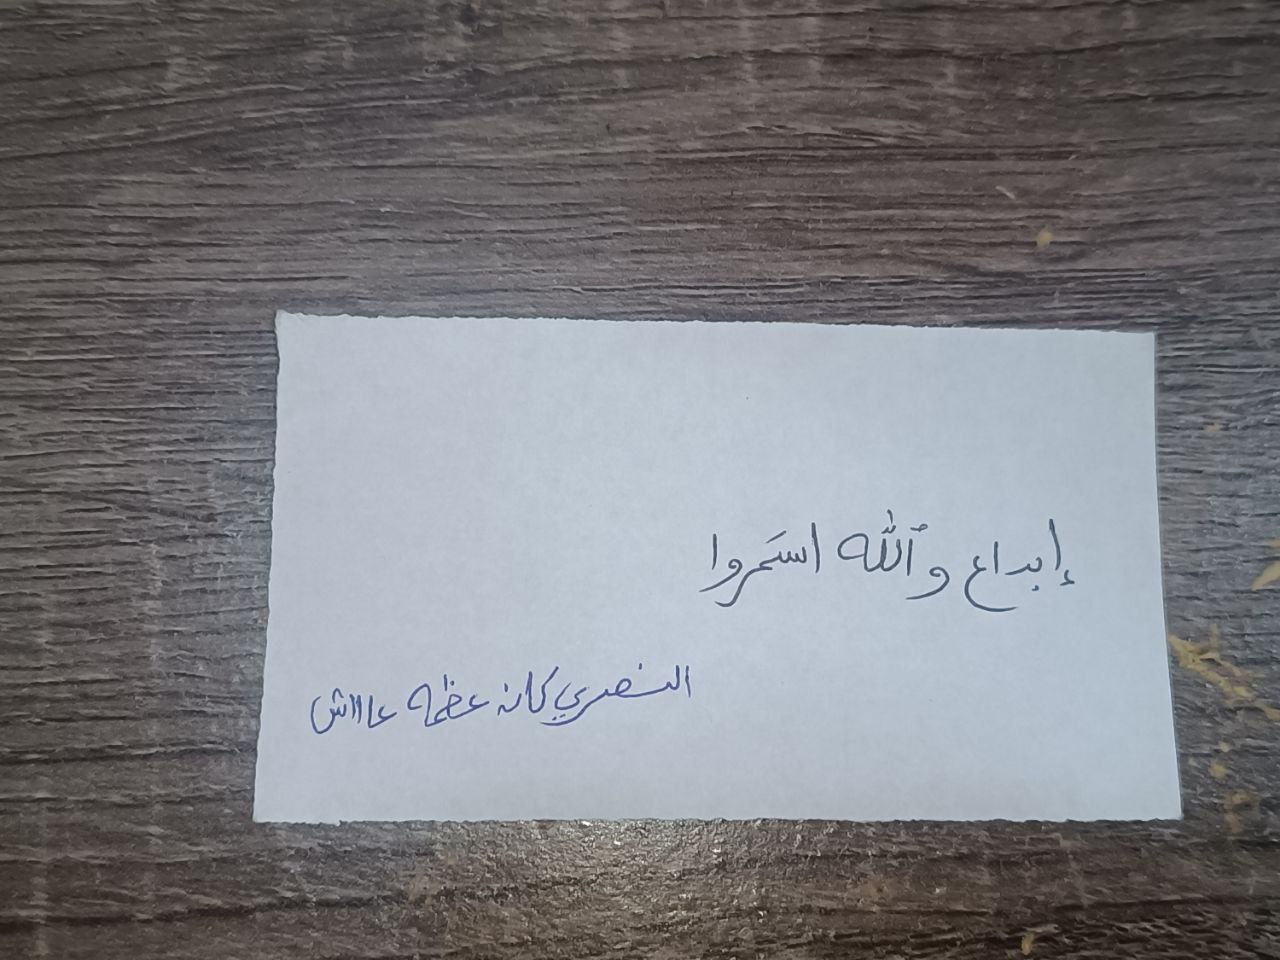 إبداع والله استمروا
النصري كان عظمه عاااش